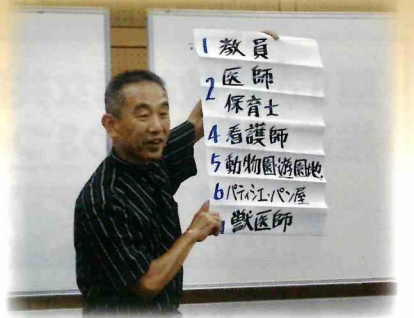 1 教員
2 医師
保育士
4 看護師
5 動物園遊園地
6 パティシエ・パン屋
獣医師